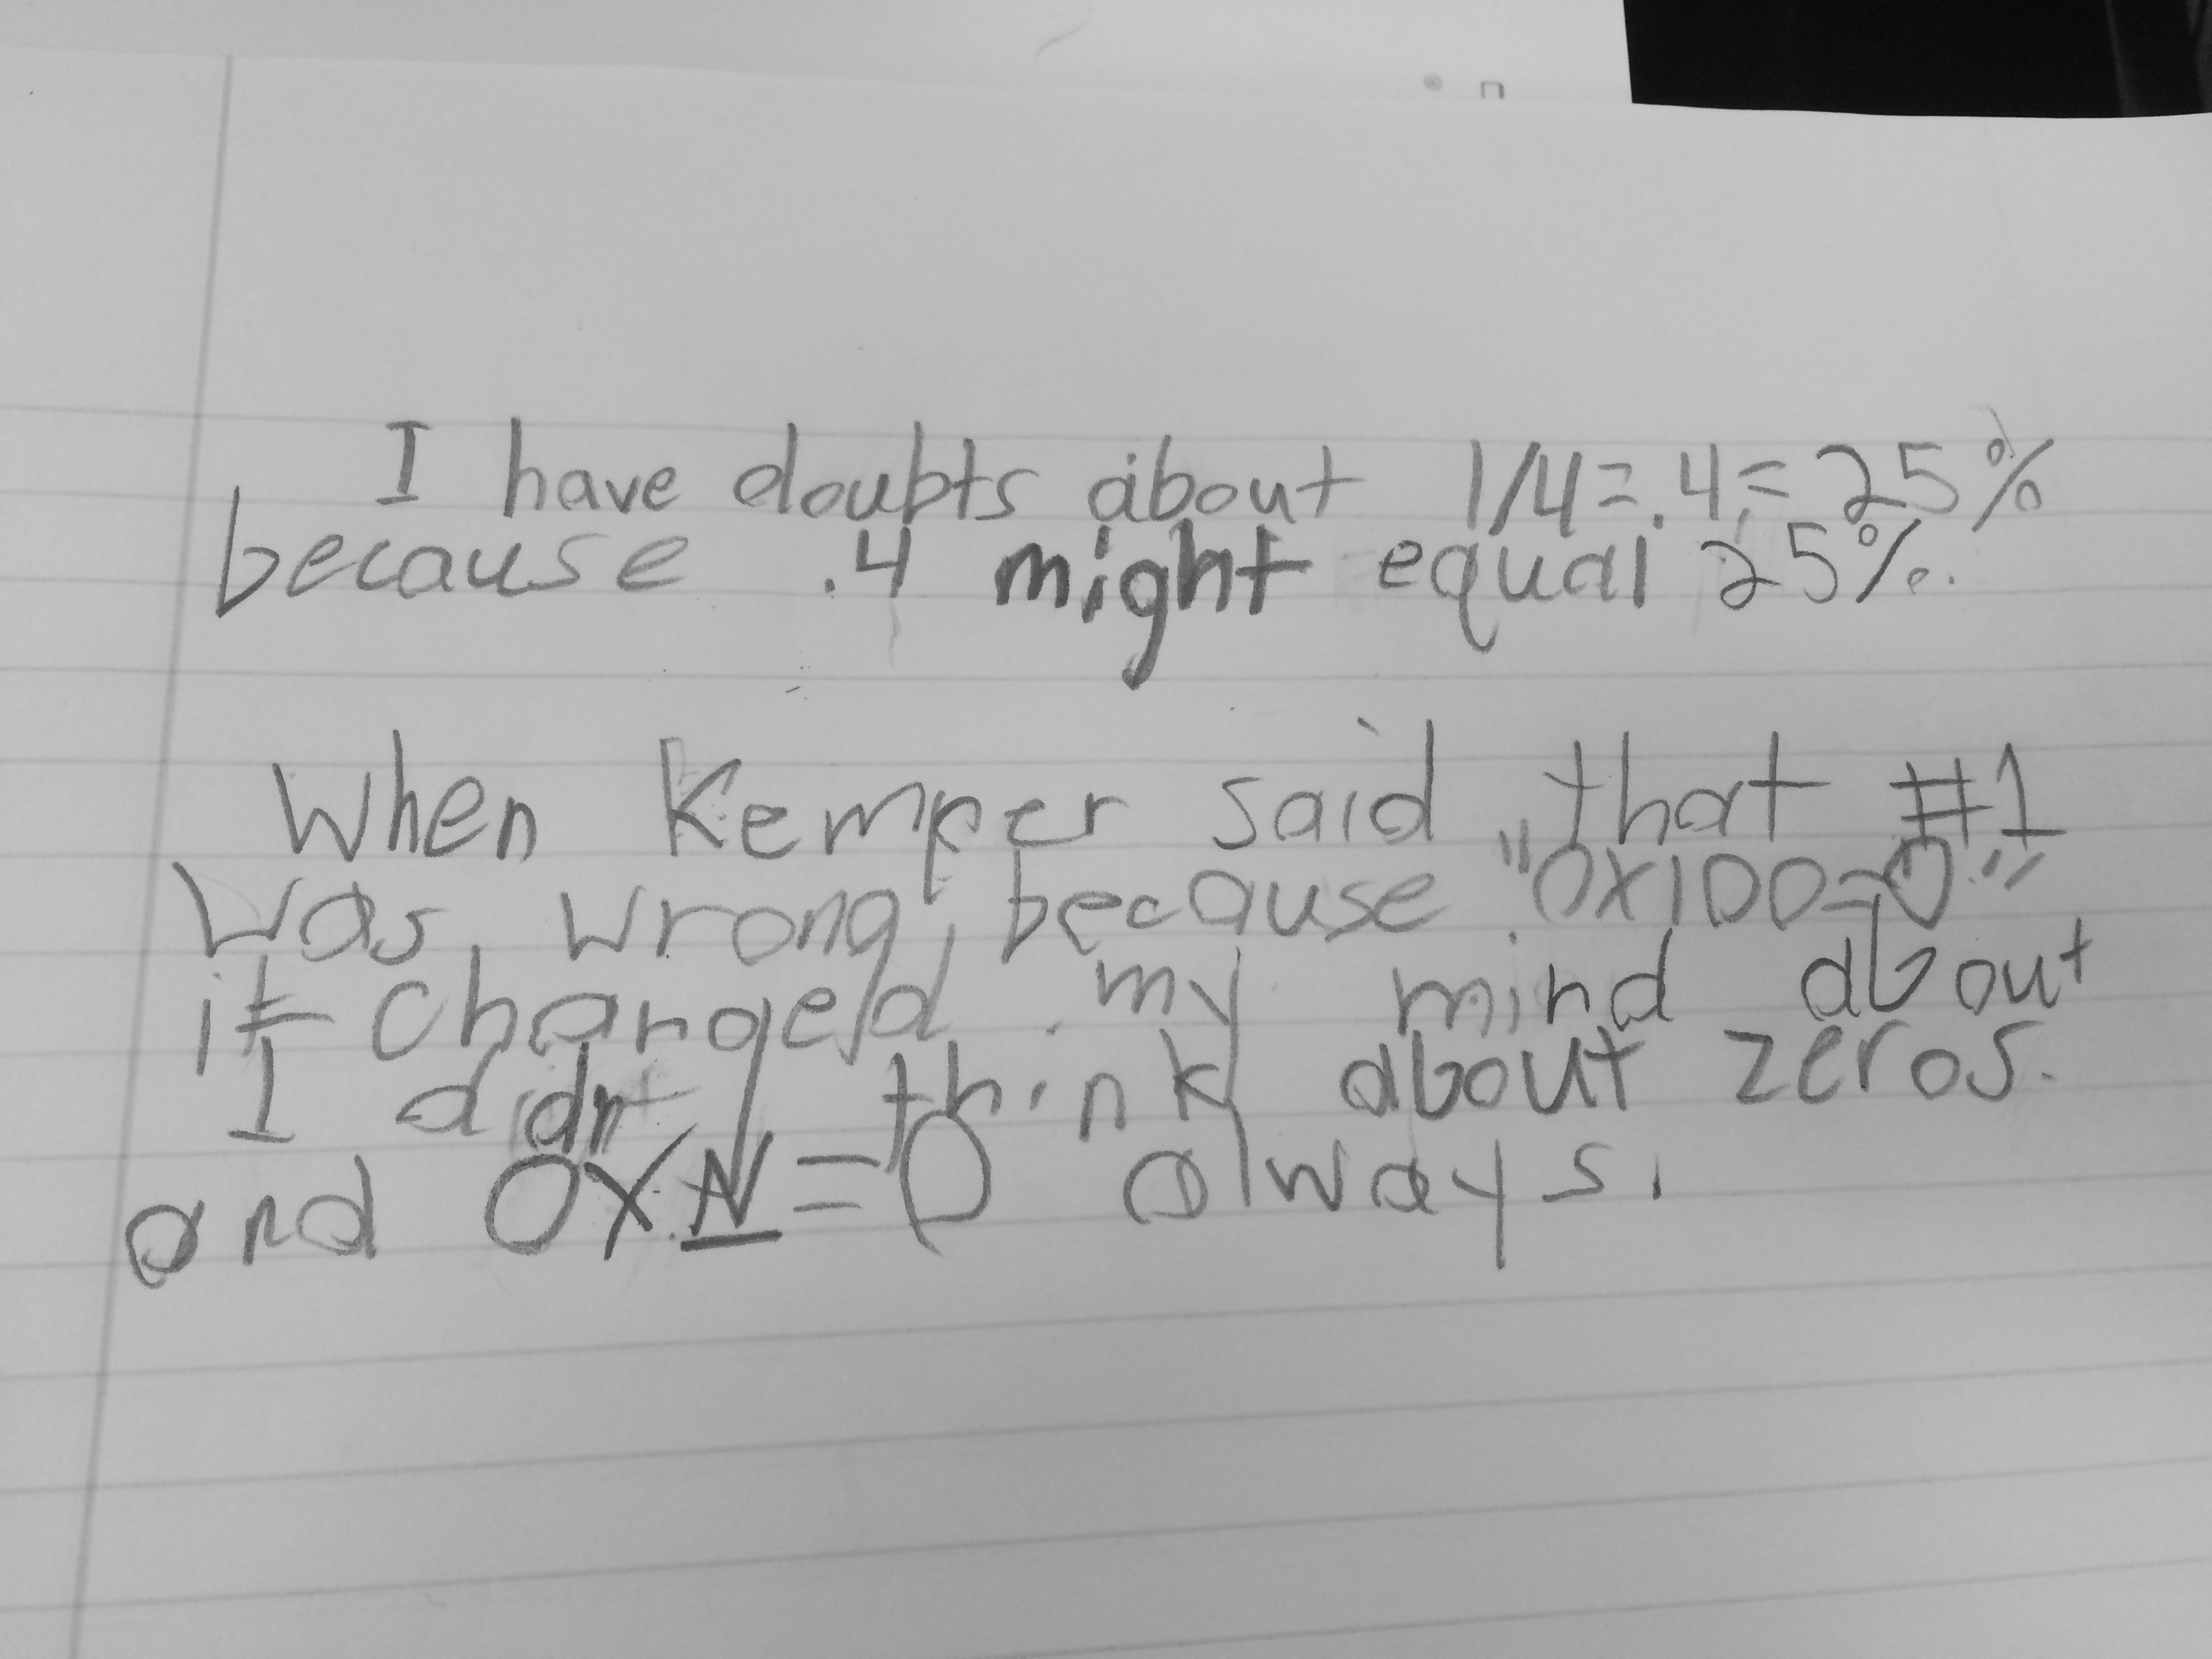 I have doubts about 1/4=.4=25%
because .4 might equal 25%.
When Kemper said that #1
was wrong because "0x100=0"
it changed my mind about
I didnt think about zeros.
and 0xN=0 always.